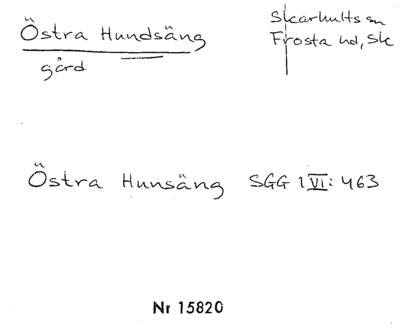 Östra Hundsäng
gård
Skarhults sn
Frosta hd, Sk
Östra Hunsäng SGG 1 VI: 463
Nr 15820